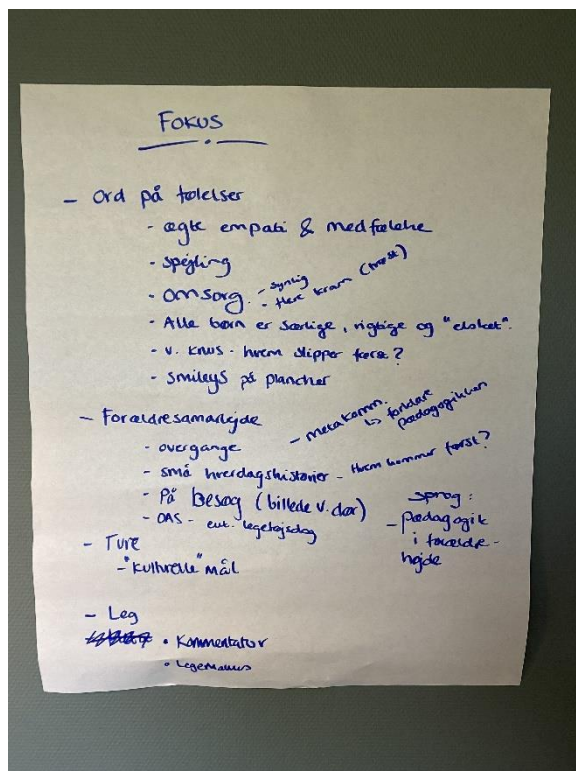 FOKUS
- Ord på følelser
- ægte empati & medfølelse
- spejling
- omsorg - synlig
- flere kram (trøst)
- Alle børn er særlige, rigtige og "elsket".
- v. knus - hvem slipper først?
- smileys på plancher
- Forældresamarbejde
- metakomm.
↳ forklare pædagogikken
- overgange
- små hverdagshistorier - Hvem kommer først?
- På besøg (billede v. dør)
- OAS - evt. legetøjsdag
sprog:
- pædagogik
i forældre-
højde
- Ture
- "kulturelle" mål
- Leg
• Kommentator